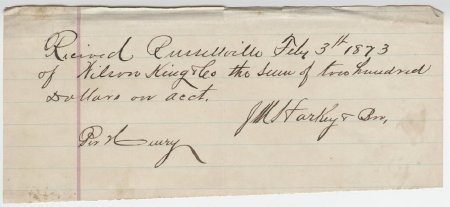 Recieved Russellville Feby 3th 1873
of Wilson King & Co the sum of two hundred
Dollars on acct.
J M Harkey & Bro,
Per Henry